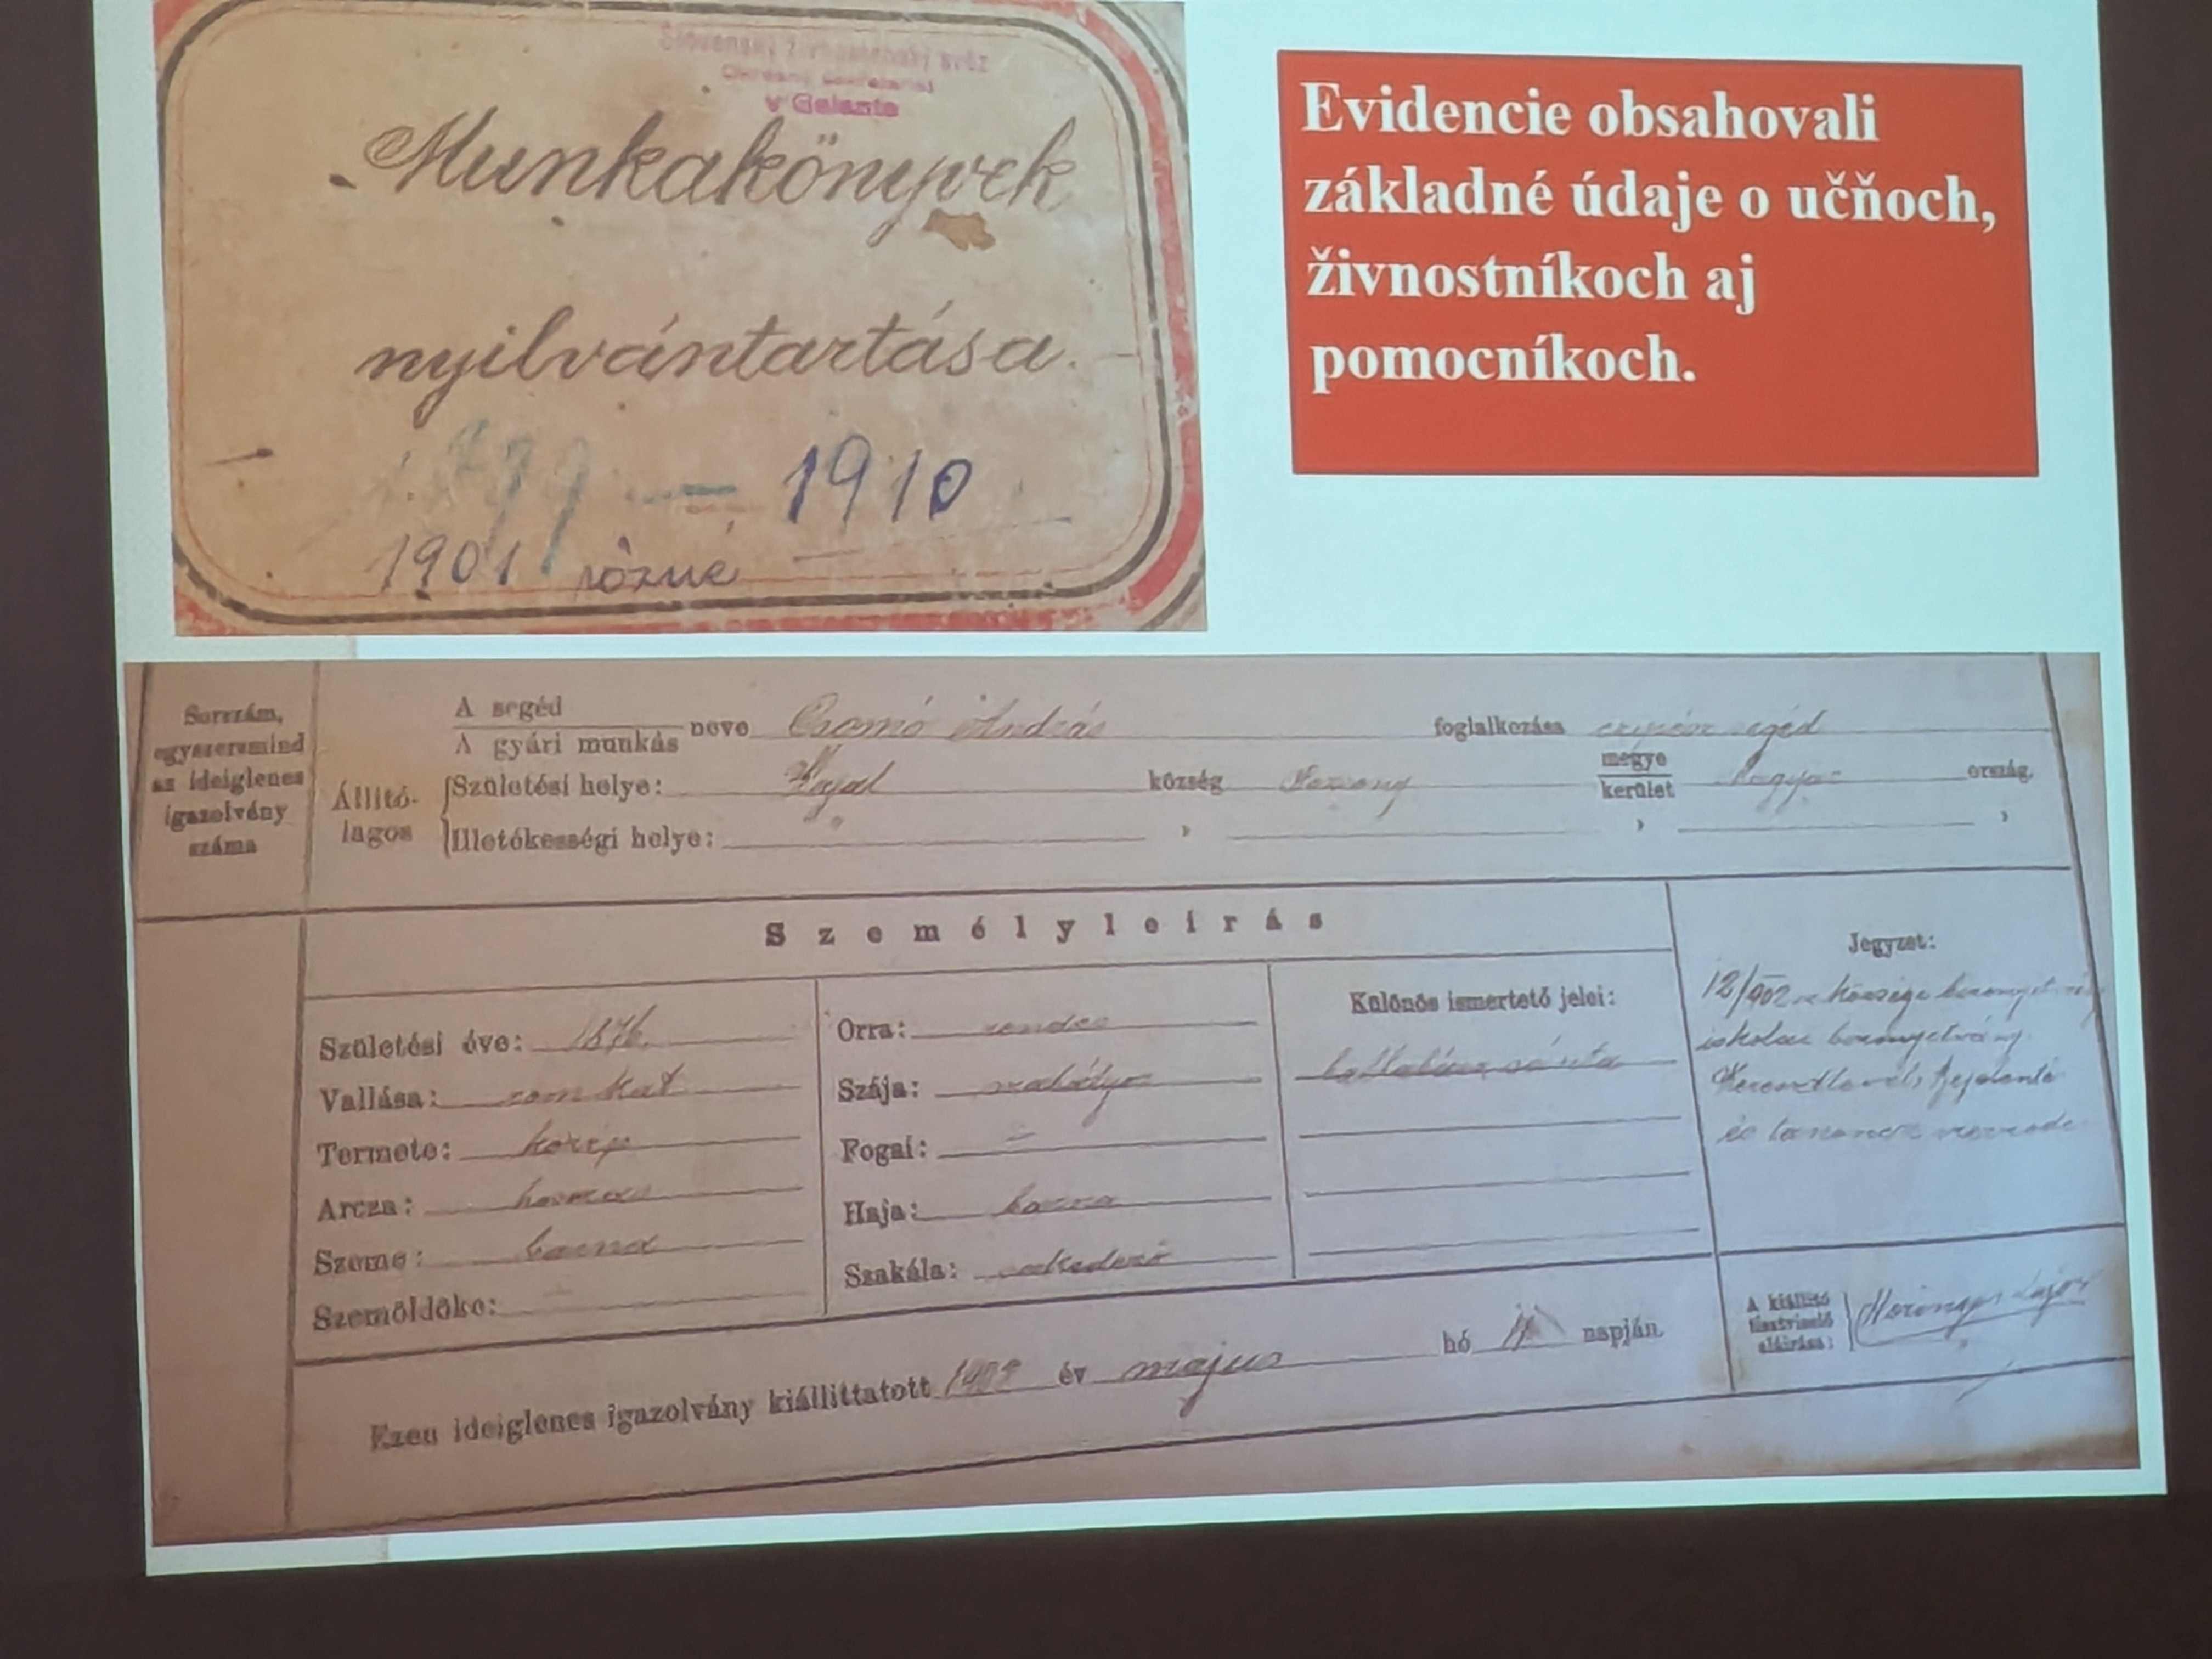 Slovenský živnostenský sväz
Okresný sekretariat
v Galante
Munkakönyvek
nyilvántartása.
1899 — 1910
1901 rôzne
Evidencie obsahovali
základné údaje o učňoch,
živnostníkoch aj
pomocníkoch.
Sorszám,
egyszersmind
az ideiglenes
igazolvány
száma
A segéd
A gyári munkás
neve Csomó András foglalkozása segéd
Állító-
lagos
Születési helye: Vajal község Pozsony megye
kerület Magyar ország.
Illetőkességi helye: „ „ „
Személyleírás
Születési éve: 1876
Vallása: rom kat
Termete: közép
Arcza: hosszas
Szeme: barna
Szemöldöke:
Orra: rendes
Szája: szabályos
Fogai: –
Haja: barna
Szakála:
Különös ismertető jelei:
ballábára sánta
Jegyzet:
12/902 községi bizonyítvány
iskolai bizonyítvány
és
Ezen ideiglenes igazolvány kiállíttatott év május hó napján.
A kiállító
tisztviselő
aláírása:
Lajos